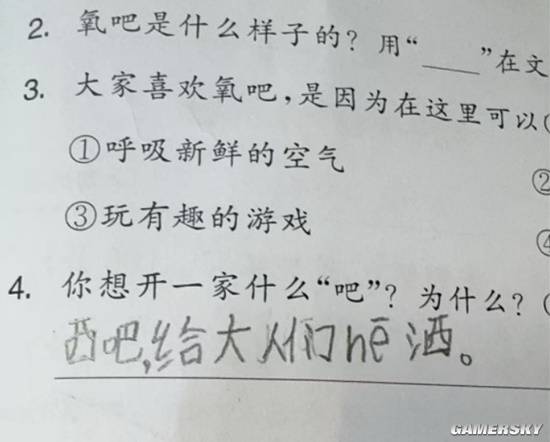 2. 氧吧是什么样子的？用“____”在文
3. 大家喜欢氧吧，是因为在这里可以(
①呼吸新鲜的空气
②
③玩有趣的游戏
④
4. 你想开一家什么“吧”？为什么？(
西吧，给大人们hē洒。
GAMERSKY